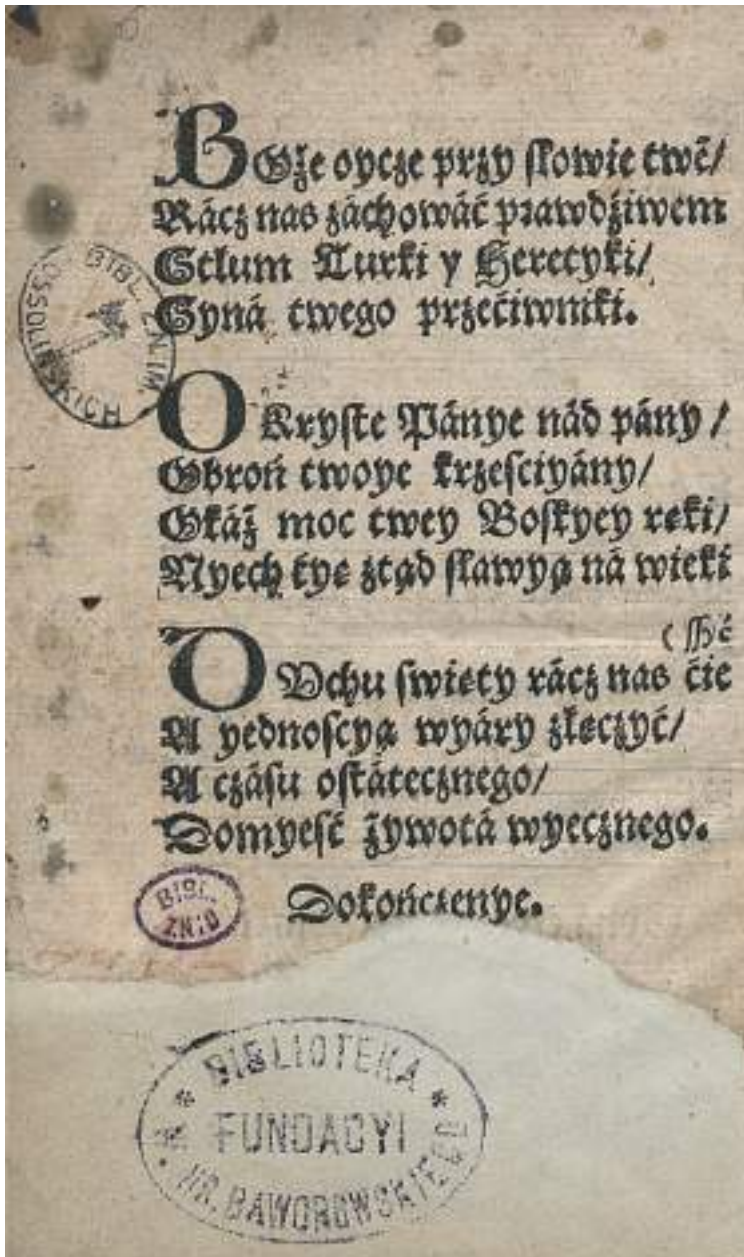 BOże oycze przy słowie twē/
Rácz nas záchowáć prawdźiwem
Stlum Turki y Heretyki/
Syná twego przećiwniki.
O Kryste Pánye nád pány/
Obroń twoye krześciyány/
Okáż moc twey Boskyey ręki/
Nyech ćye ztąd sławyą ná wieki
(szyć
O Dchu swięty rácz nas ćie
A yednoscyą wyáry złeczyć/
A czásu ostátecznego/
Domyeść żywotá wyecznego.
Dokończenye.
BIBL. ZN. IM. OSSOLIŃSKICH
BIBL.
ZN:O
BIBLIOTEKA
FUNDACYI
HR. BAWOROWSKIEGO